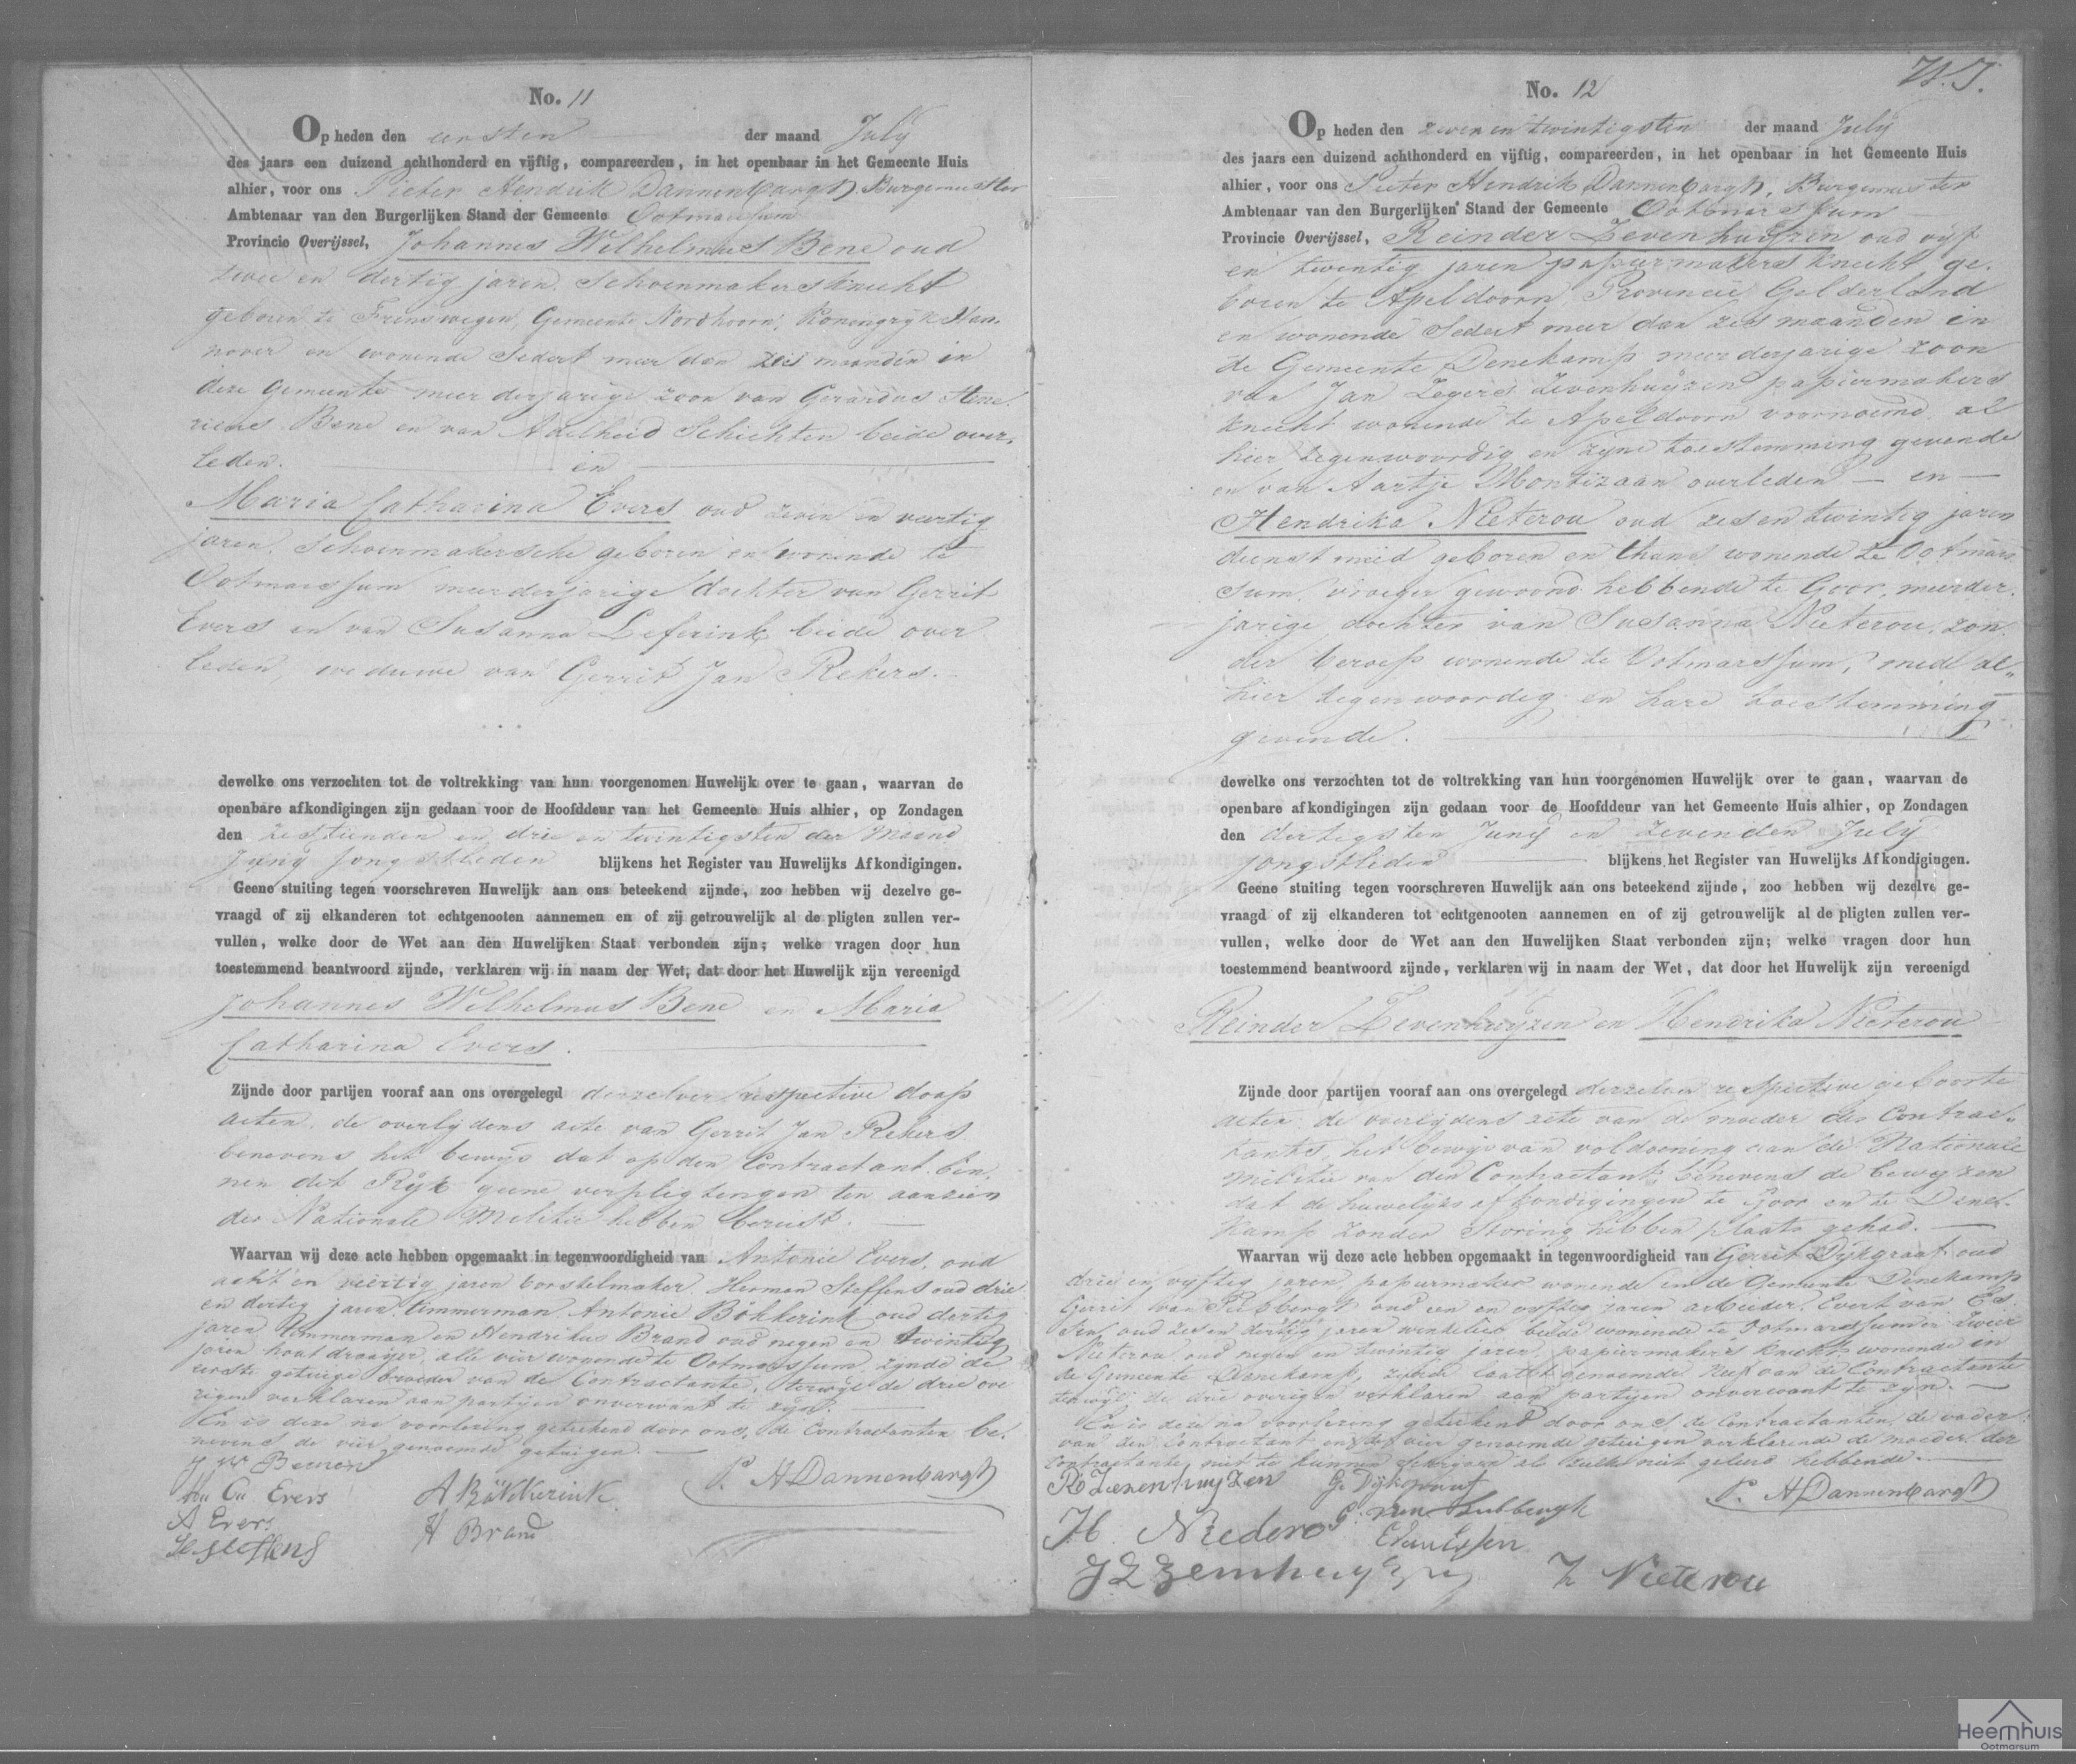 No. 11
Op heden den eersten der maand July
des jaars een duizend achthonderd en vijftig, compareerden, in het openbaar in het Gemeente Huis
alhier, voor ons Pieter Hendrik Dannenbargh, Burgemeester
Ambtenaar van den Burgerlijken Stand der Gemeente Ootmarssum
Provincie Overijssel, Johannes Wilhelmus Bene oud
twee en dertig jaren schoenmakersknecht
geboren te Frenswegen, Gemeente Nordhoorn, Koningryk Han-
nover en wonende sedert meer dan zes maanden in
deze Gemeente meerderjarige zoon van Gerardus Hen
ricus Bene en van Adelheid Schichten beide over-
leden. en
Maria Catharina Evers oud zeven en veertig
jaren, schoenmakersche geboren en wonende te
Ootmarssum meerderjarige dochter van Gerrit
Evers en van Susanna Leferink beide over
leden, weduwe van Gerrit Jan Rekers.
dewelke ons verzochten tot de voltrekking van hun voorgenomen Huwelijk over te gaan, waarvan de
openbare afkondigingen zijn gedaan voor de Hoofddeur van het Gemeente Huis alhier, op Zondagen
den zestienden en drie en twintigsten der Maand
Juny jongstleden blijkens het Register van Huwelijks Afkondigingen.
Geene stuiting tegen voorschreven Huwelijk aan ons beteekend zijnde, zoo hebben wij dezelve ge-
vraagd of zij elkanderen tot echtgenooten aannemen en of zij getrouwelijk al de pligten zullen ver-
vullen, welke door de Wet aan den Huwelijken Staat verbonden zijn; welke vragen door hun
toestemmend beantwoord zijnde, verklaren wij in naam der Wet, dat door het Huwelijk zijn vereenigd
Johannes Wilhelmus Bene en Maria
Catharina Evers.
Zijnde door partijen vooraf aan ons overgelegd derzelver respective doop
acten, de overlydens acte van Gerrit Jan Rekers
benevens het bewys dat op den Contractant bin
nen dit Ryk geene verpligtingen ten aanzien
der Nationale Militie hebben berust.
Waarvan wij deze acte hebben opgemaakt in tegenwoordigheid van Antonie Evers, oud
acht en veertig jaren borstelmaker, Herman Steffens oud drie
en dertig jaren timmerman, Antonie Bökkerink oud dertig
jaren timmerman en Hendrikus Brand oud negen en twintig
jaren hout draayer, alle vier wonende te Ootmarssum, zynde de
eerste getuige broeder van de Contractante, terwyl de drie ove
rigen verklaren aan partyen onverwant te zyn.
En is deze na voorlezing geteekend door ons, de Contractanten be-
nevens de vier genoemde getuigen.
J W Benen
Ma Ca Evers
A Evers
H Steffens
A Bökkerink
H Brand
P. H Dannenbargh
No. 12
Op heden den zeven en twintigsten der maand July
des jaars een duizend achthonderd en vijftig, compareerden, in het openbaar in het Gemeente Huis
alhier, voor ons Pieter Hendrik Dannenbargh, Burgemeester
Ambtenaar van den Burgerlijken Stand der Gemeente Ootmarssum
Provincie Overijssel, Reinder Zevenhuyzen oud vyf
en twintig jaren papiermakers knecht ge-
boren te Apeldoorn, Provincie Gelderland
en wonende sedert meer dan zes maanden in
de Gemeente Denekamp meerderjarige zoon
van Jan Zegers Zevenhuyzen papiermakers
knecht wonende te Apeldoorn voornoemd, al
hier tegenwoordig en zyne toestemming gevende
en van Aartje Montizaan overleden en
Hendrika Nieterou oud zes en twintig jaren
dienstmeid geboren en thans wonende te Ootmars
sum, vroeger gewoond hebbende te Goor, meerder-
jarige dochter van Susanna Nieterou, zon
der beroep wonende te Ootmarssum, mede al-
hier tegenwoordig en hare toestemming
gevende.
dewelke ons verzochten tot de voltrekking van hun voorgenomen Huwelijk over te gaan, waarvan de
openbare afkondigingen zijn gedaan voor de Hoofddeur van het Gemeente Huis alhier, op Zondagen
den dertigsten Juny en zevenden July
jongstleden blijkens het Register van Huwelijks Afkondigingen.
Geene stuiting tegen voorschreven Huwelijk aan ons beteekend zijnde, zoo hebben wij dezelve ge-
vraagd of zij elkanderen tot echtgenooten aannemen en of zij getrouwelijk al de pligten zullen ver-
vullen, welke door de Wet aan den Huwelijken Staat verbonden zijn; welke vragen door hun
toestemmend beantwoord zijnde, verklaren wij in naam der Wet, dat door het Huwelijk zijn vereenigd
Reinder Zevenhuyzen en Hendrika Nieterou
Zijnde door partijen vooraf aan ons overgelegd derzelver respective geboorte
acten, de overlydens acte van de moeder des Contrac-
tants, het bewys van voldoening aan de Nationale
Militie van den Contractant, benevens de bewyzen
dat de huwelyks afkondigingen te Goor en te Dene-
kamp zonder storing hebben plaats gehad.
Waarvan wij deze acte hebben opgemaakt in tegenwoordigheid van Gerrit Dykgraaf oud
drie en vyftig jaren, papiermaker wonende in de Gemeente Denekamp
Gerrit van oud een en vyftig jaren arbeider, Evert van Es
sen, oud zes en dertig jaren winkelier beide wonende te Ootmarssum en
Nieterou oud negen en twintig jaren, papiermakers knecht wonende in
de Gemeente Denekamp, zynde laatstgenoemde Neef van de Contractante
terwyl de drie overigen verklaren aan partyen onverwant te zyn.
En is deze na voorlezing geteekend door ons, de Contractanten, de vader
van den Contractant en de vier genoemde getuigen verklarende de moeder der
Contractante niet te kunnen schryven als zulks niet geleerd hebbende.
R Zevenhuyzen
G. Dykgraaf
P. H Dannenbargh
H. Niedero
G. van Lubbergh
E van Essen
J Z Zemhuyzen
Z Nieterou
Heemhuis
Ootmarsum